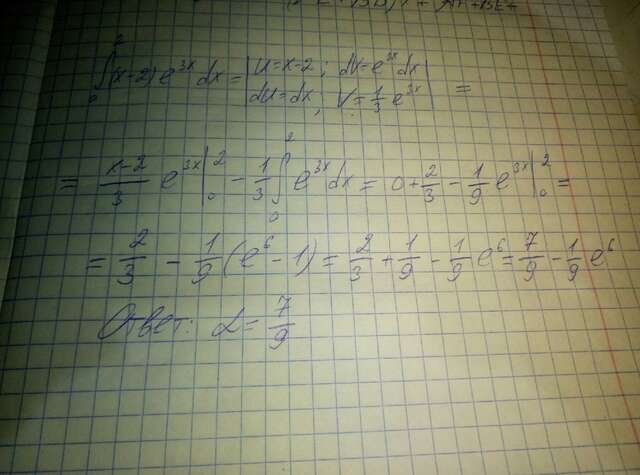 ∫₀² (x-2) e^{3x} dx = | u=x-2; dv=e^{3x}dx |
| du=dx; v=\frac{1}{3}e^{3x} | =
= \frac{x-2}{3} e^{3x} |₀² - \frac{1}{3} ∫₀² e^{3x} dx = 0 + \frac{2}{3} - \frac{1}{9} e^{3x} |₀² =
= \frac{2}{3} - \frac{1}{9} (e^6 - 1) = \frac{2}{3} + \frac{1}{9} - \frac{1}{9} e^6 = \frac{7}{9} - \frac{1}{9} e^6
Ответ: α = \frac{7}{9}